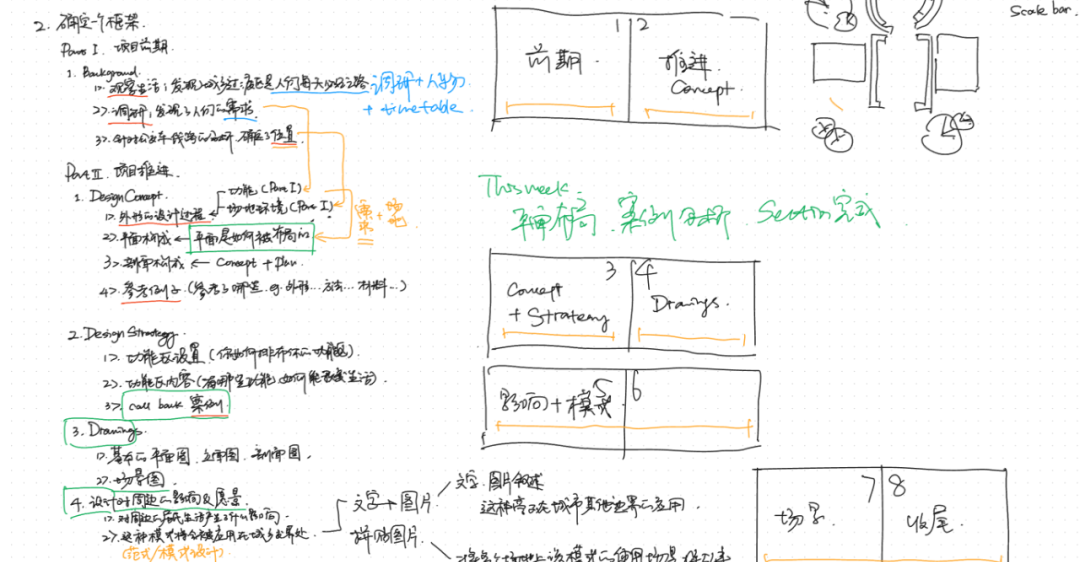 2. 确定一个框架
Part I. 项目前期.
1. Background.
1>. 观察生活; 发现
调研+
+ timetable.
2>. 调研; 发现了人们的需求
3>.
位置
Part II. 项目推进
1. Design Concept.
1>. 外形的设计过程 ← 功能 (Part I)
场地环境 (Part I)
2>. 平面构成 ← 平面是如何被布局的
3>. 剖面构成 ← Concept + Plan
4>. 参考例子. (参考了哪些. e.g. 外形... 方法... 材料...)
需求 + 场地
2. Design Strategy.
1>. 功能区设置 (你如何排布你的功能区).
2>. 功能区内容 (有哪些功能, 如何能
3>. call back 案例
3. Drawings.
1>. 基本的平面图, 立面图, 剖面图.
2>. 场景图.
4. 设计对周边的影响及愿景
1>. 对周边的居民生活产生了什么影响.
2>. 这种模式将会被应用在城市
(范式/模式设计)
文字 + 图片
拼贴图片
文字. 图片叙述
这种
在城市其他边界的应用.
该模式的使用场景
1
前期
2
推进
Concept
Scale bar.
This week.
平面布局、案例分析、Section完成
3
Concept
+ Strategy
4
Drawings.
5
影响 + 模式
6
7
场景
8
收尾